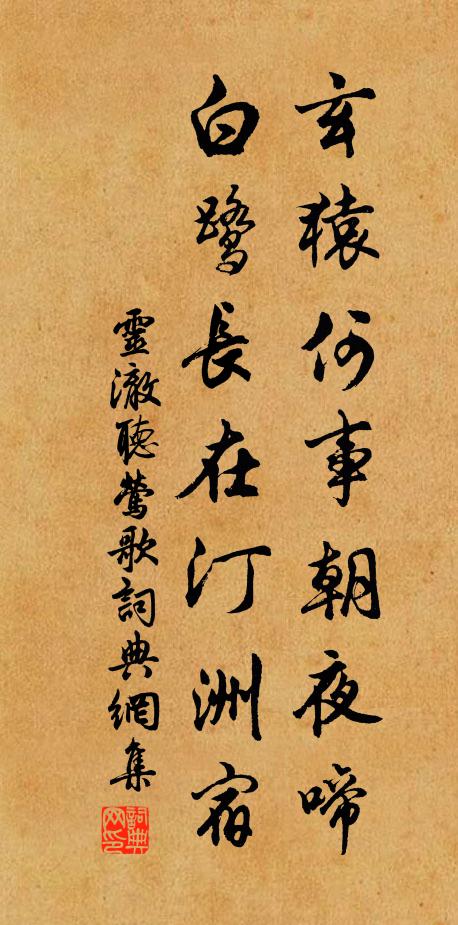 玄猿何事朝夜啼
白鷺長在汀洲宿
靈澈聽鶯歌詞典網集
詞典网印